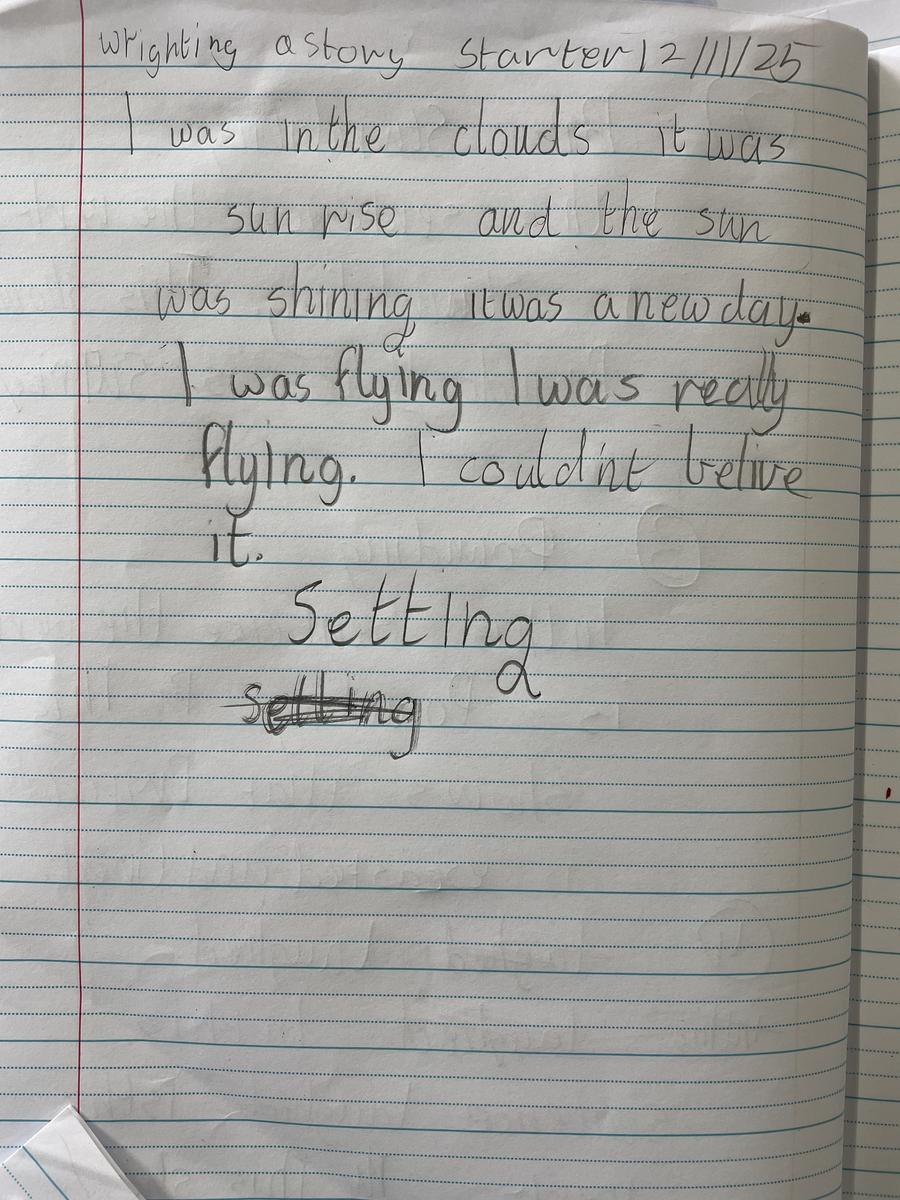 wrighting a story starter 12/11/25
I was in the clouds it was
sun rise and the sun
was shining it was a new day.
I was flying I was really
flying. I could'nt belive
it.
Setting
setting